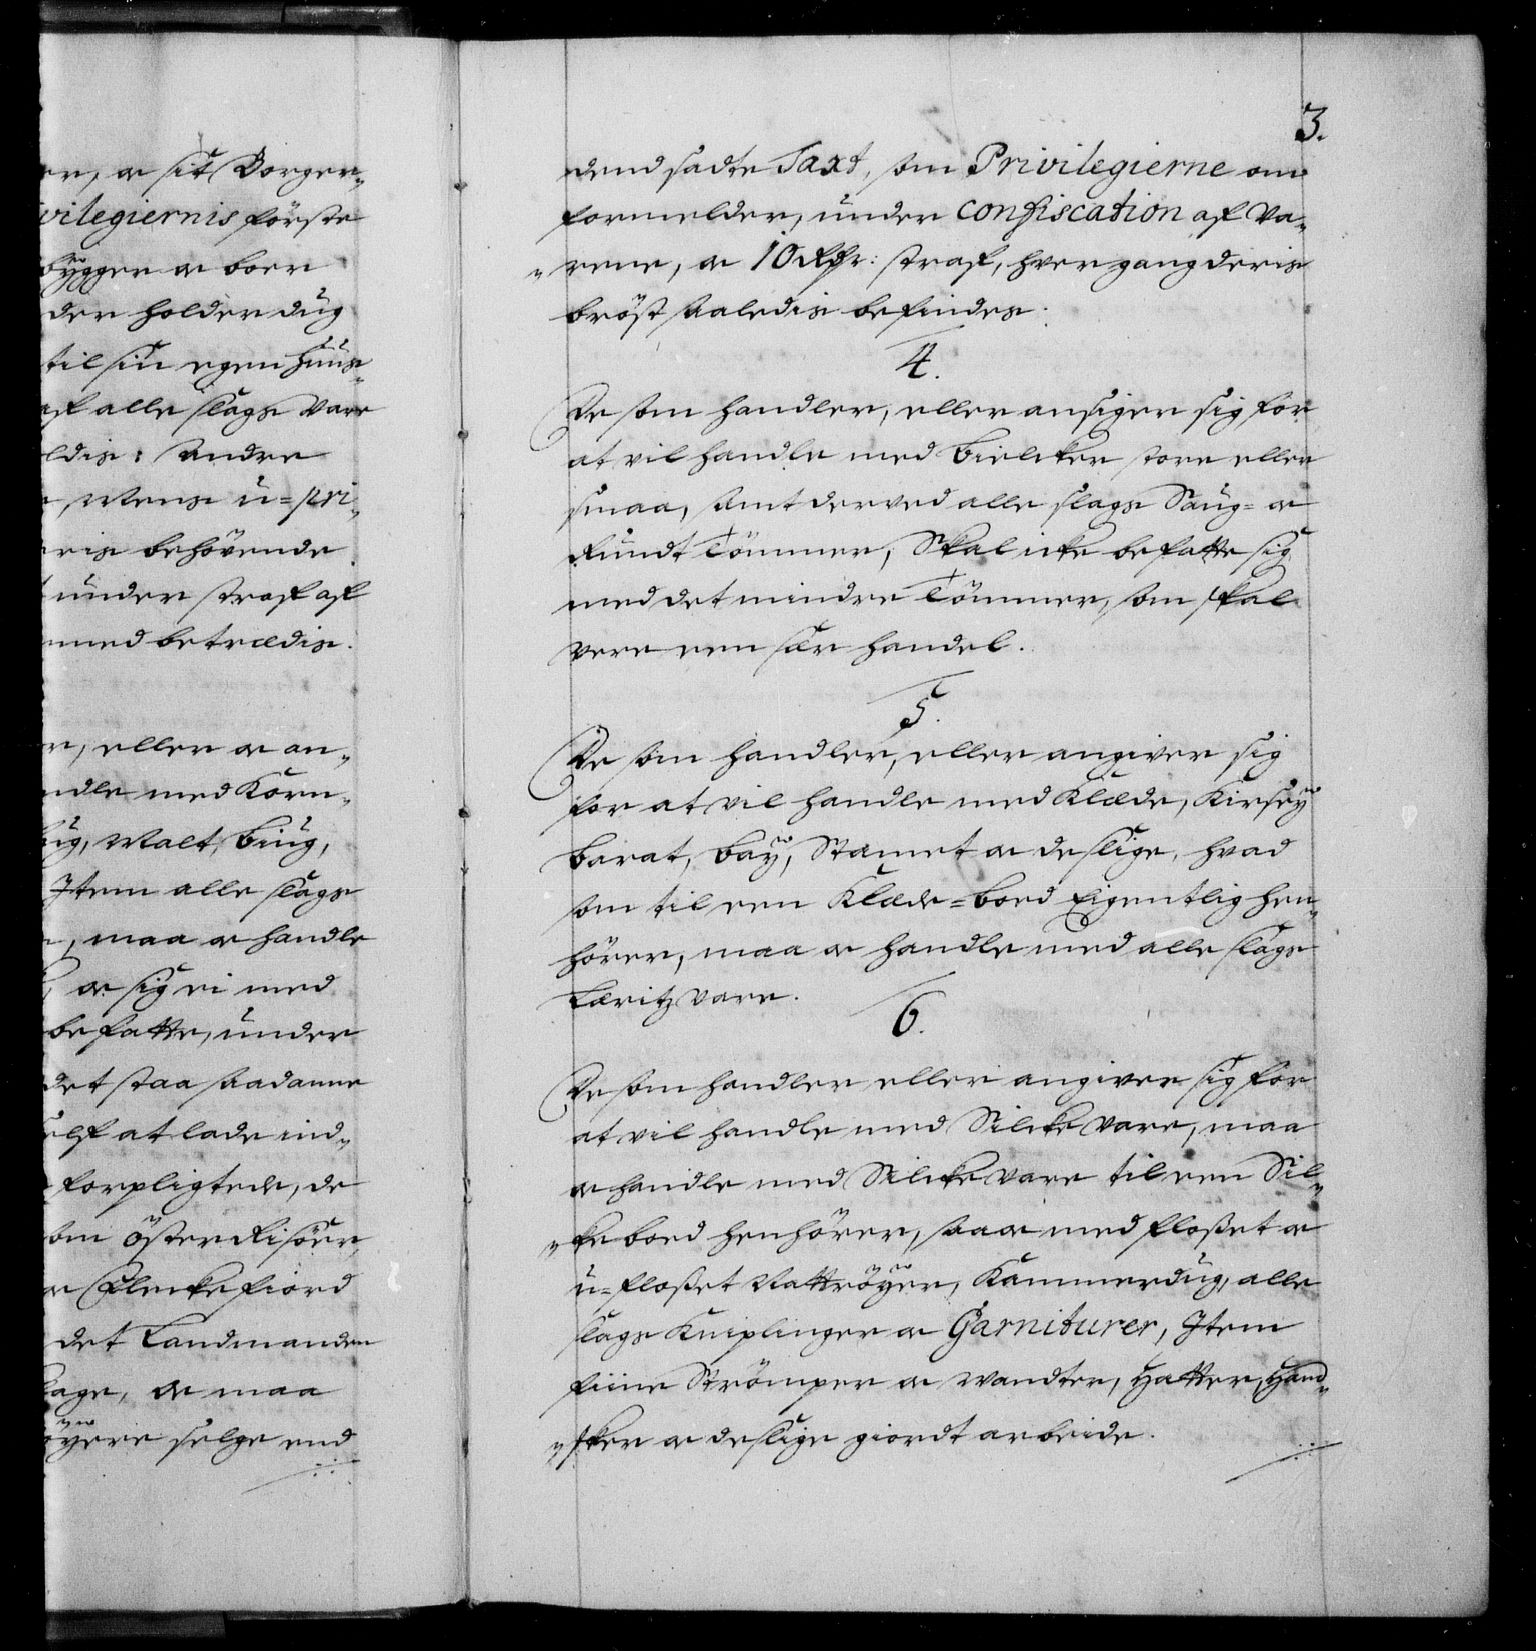 er, oc sit Borger„
vilegiernis förste
bÿgger oc boer
der holder dug
til sin egen Huus„
af alle slags Vare
ldis: Andre
Mens u=pri„
ris behövende
under straf af
med betrædis.
r, eller oc an„
ndle med Korn„
ug, Malt, Biug,
Item alle slags
, maa oc handle
oc sig ei med
befatte, under
det staa saadanne
self at lade ind„
forpligtede, de
som Öster Risöer,
oc Flekefiord
det Landmanden
lage, oc maa
öÿere selge end
3.
dend sadte Taxt, som Privilegierne om
formelder, under Confiscation af Va„
„rene, oc 10 Rdr: straf, hver gang deris
bröst saaledis befindes.
4.
De som handler, eller ansiger sig for
at vil handle med Bielcker store eller
smaa, samt derved alle slags Saug= oc
Rundt Tömmer, Skal icke befatte sig
med det mindre Tömmer, som skal
vere een sær handel.
5.
De som handler, eller angiver sig
for at vil handle med Klæde, Kirseÿ
Barat, Baÿ, Stamet oc deslige, hvad
som til een Klæde=boed Eigentlig hen„
hörer, maa oc handle med alle slags
Læritz vare.
6.
De som handler eller angiver sig for
at vil handle med Silcke vare, maa
oc handle med Silcke vare til een Sil„
„ke boed henhörer, saa oc med floßet oc
u=floßet Nattröÿer, Kammerdug, alle
slags Kniplinger oc Garniturer, Item
fiine Strömper oc Wandter, Hatter, Hand„
„sker oc deslige giordt arbeide.